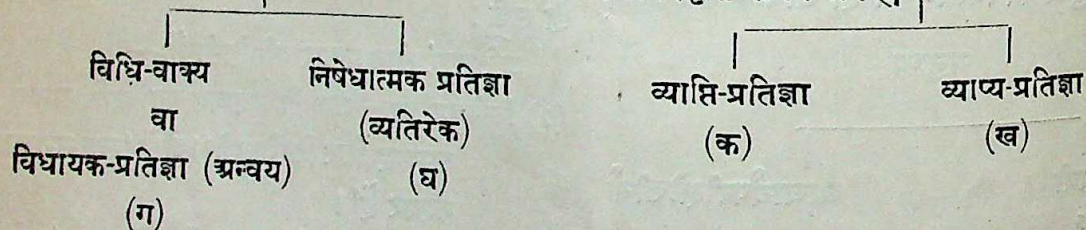 विधि-वाक्य
वा
विधायक-प्रतिज्ञा (अन्वय)
(ग)
निषेधात्मक प्रतिज्ञा
(व्यतिरेक)
(घ)
व्याप्ति-प्रतिज्ञा
(क)
व्याप्य-प्रतिज्ञा
(ख)